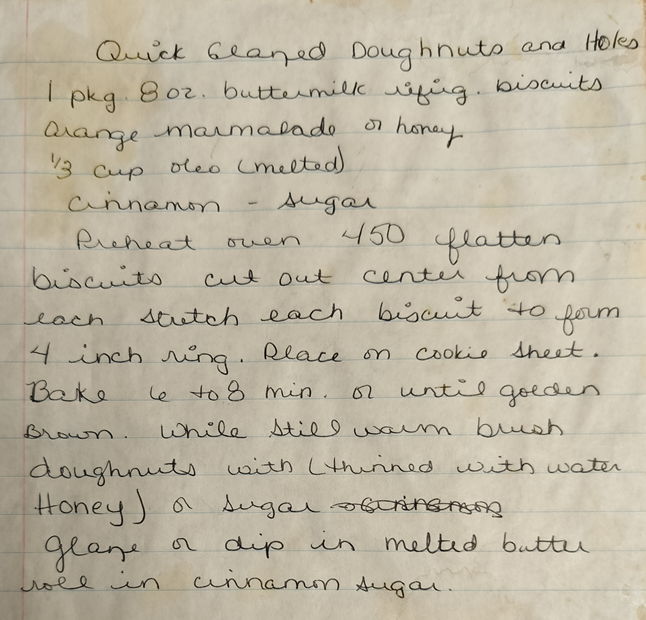 Quick Glazed Doughnuts and Holes
1 pkg. 8 oz. buttermilk rifrig. biscuits
Orange marmalade or honey
1/3 cup oleo (melted)
Cinnamon - Sugar
Preheat oven 450 flatten
biscuits cut out center from
each stretch each biscuit to form
4 inch ring. Place on cookie sheet.
Bake 6 to 8 min. or until golden
Brown. While still warm brush
doughnuts with (thinned with water
Honey) or sugar
glaze or dip in melted butter
roll in cinnamon sugar.